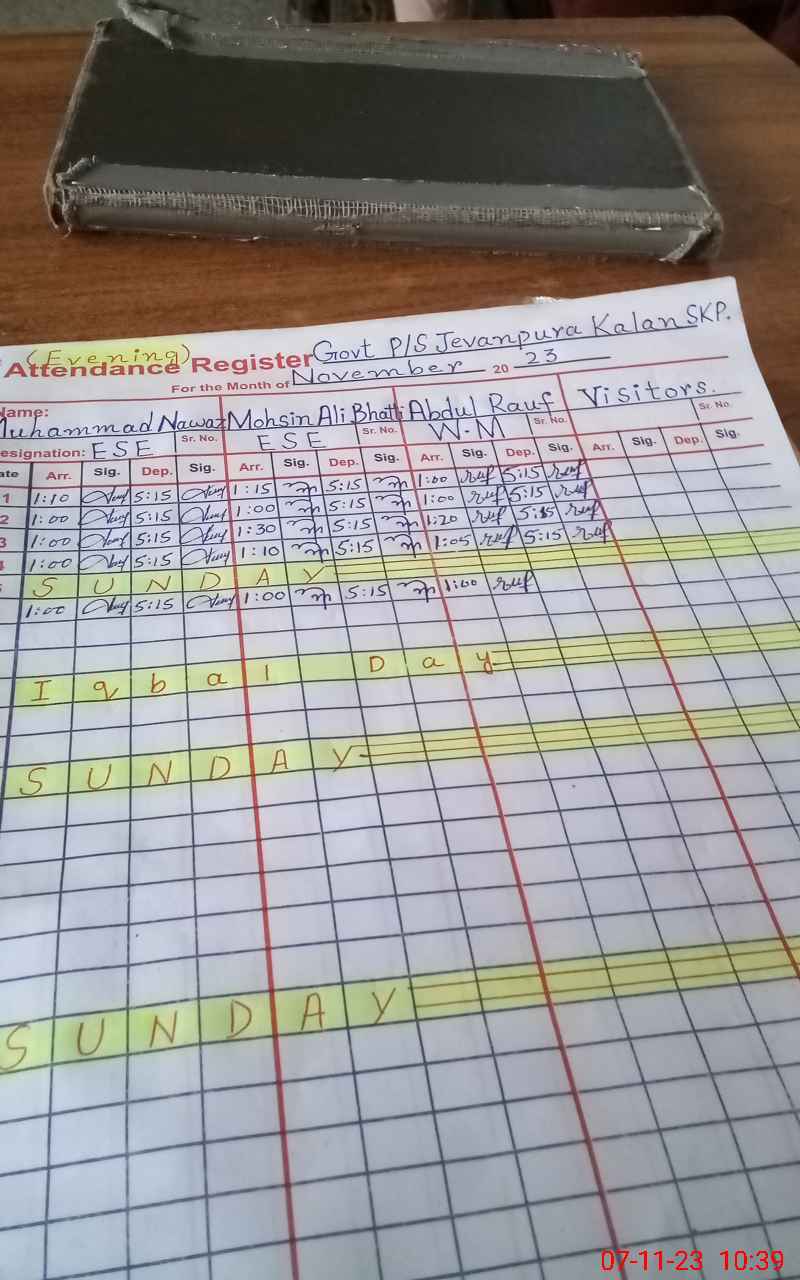 (Evening)
Attendance Register Govt P/S Jevanpura Kalan SKP.
For the Month of November 20 23
Name: Visitors.
Muhammad Nawaz Mohsin Ali Bhatti Abdul Rauf
Sr. No. Sr. No. Sr. No. Sr. No.
Designation: ESE ESE W.M
Date Arr. Sig. Dep. Sig. Arr. Sig. Dep. Sig. Arr. Sig. Dep. Sig. Arr. Sig. Dep. Sig.
1 1:10 5:15 1:15 5:15 1:00 rauf 5:15 rauf
2 1:00 5:15 1:00 5:15 1:00 rauf 5:15 rauf
3 1:00 5:15 1:30 5:15 1:20 rauf 5:15 rauf
4 1:00 5:15 1:10 5:15 1:05 rauf 5:15 rauf
5 SUNDAY
1:00 5:15 1:00 5:15 1:00 rauf
Iqbal Day
SUNDAY
SUNDAY
07-11-23 10:39